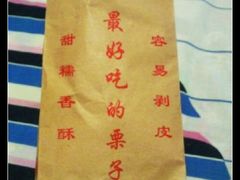 容易剥皮
最好吃的栗子
甜糯香酥